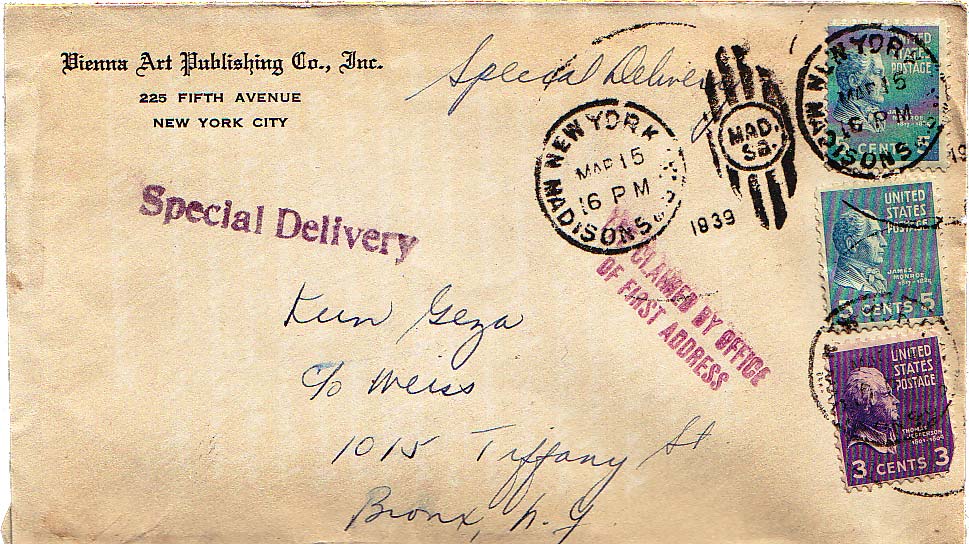 Vienna Art Publishing Co., Inc.
225 FIFTH AVENUE
NEW YORK CITY
Special Delivery
NEW YORK
MAR 15
16 PM
MADISON SQ.
MAD.
SQ.
1939
NEW YORK
MAR 15
16 PM
MADISON SQ.
19
UNITED
STATES
POSTAGE
JAMES
MONROE
1817-1825
CENTS 5
UNITED
STATES
POSTAGE
JAMES
MONROE
1817-1825
5 CENTS 5
UNITED
STATES
POSTAGE
THOMAS
JEFFERSON
1801-1809
3 CENTS 3
Special Delivery
CLAIMED BY OFFICE
OF FIRST ADDRESS
Kun Geza
c/o Weiss
1015 Tiffany St
Bronx, N.Y.